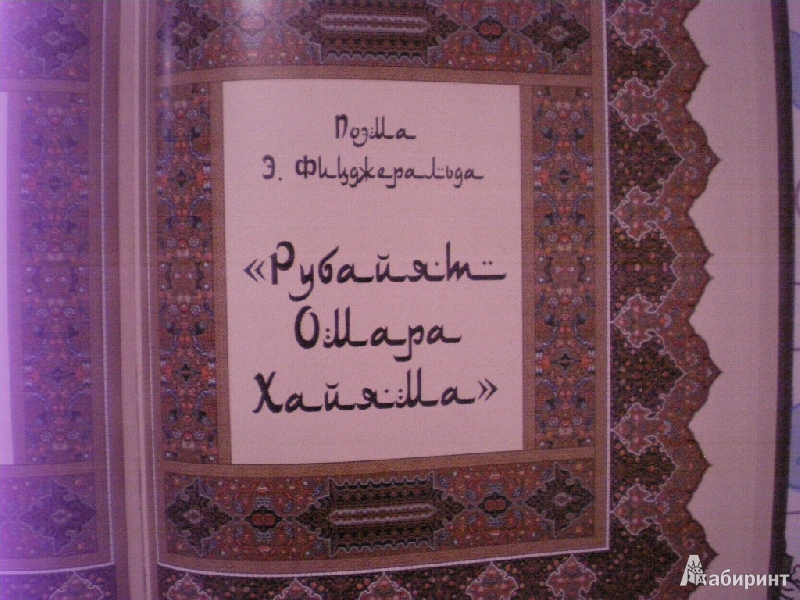 Поэма
Э. Фицджеральда
«Рубайят
Омара
Хайяма»
Лабиринт